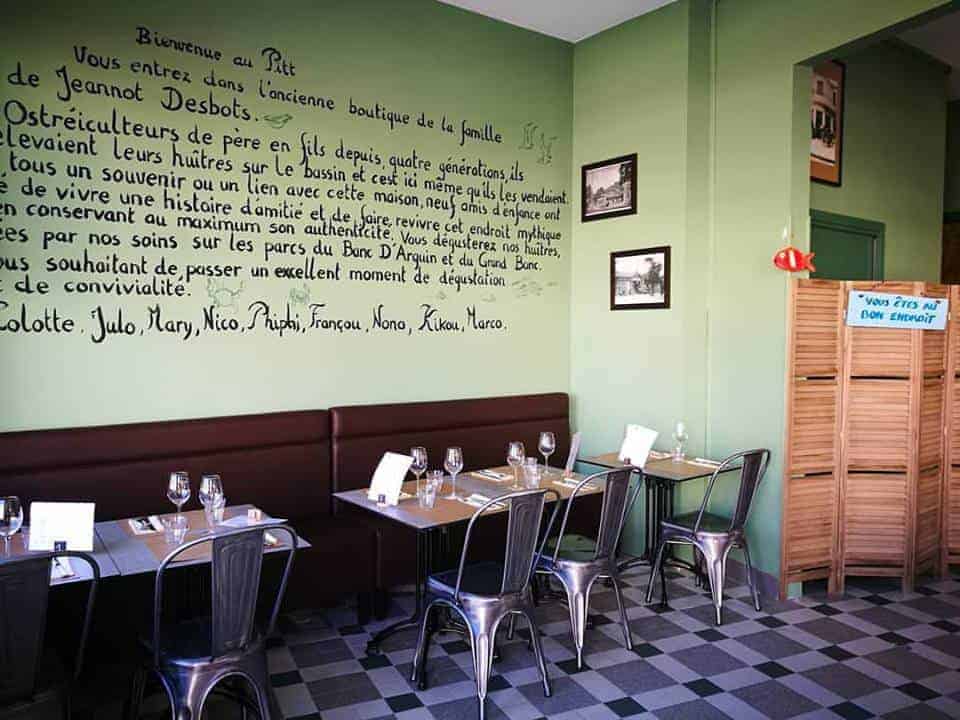 Bienvenue au Pitt
Vous entrez dans l'ancienne boutique de la famille
de Jeannot Desbots.
Ostréiculteurs de père en fils depuis quatre générations, ils
élevaient leurs huîtres sur le bassin et c'est ici même qu'ils les vendaient.
tous un souvenir ou un lien avec cette maison, neuf amis d'enfance ont
de vivre une histoire d'amitié et de faire revivre cet endroit mythique
en conservant au maximum son authenticité. Vous dégusterez nos huîtres,
par nos soins sur les parcs du Banc D'Arguin et du Grand Banc.
souhaitant de passer un excellent moment de dégustation
de convivialité.
Colotte, Julo, Mary, Nico, Phiphi, Françou, Nono, Kikou, Marco.
"VOUS ÊTES AU"
BON ENDROIT